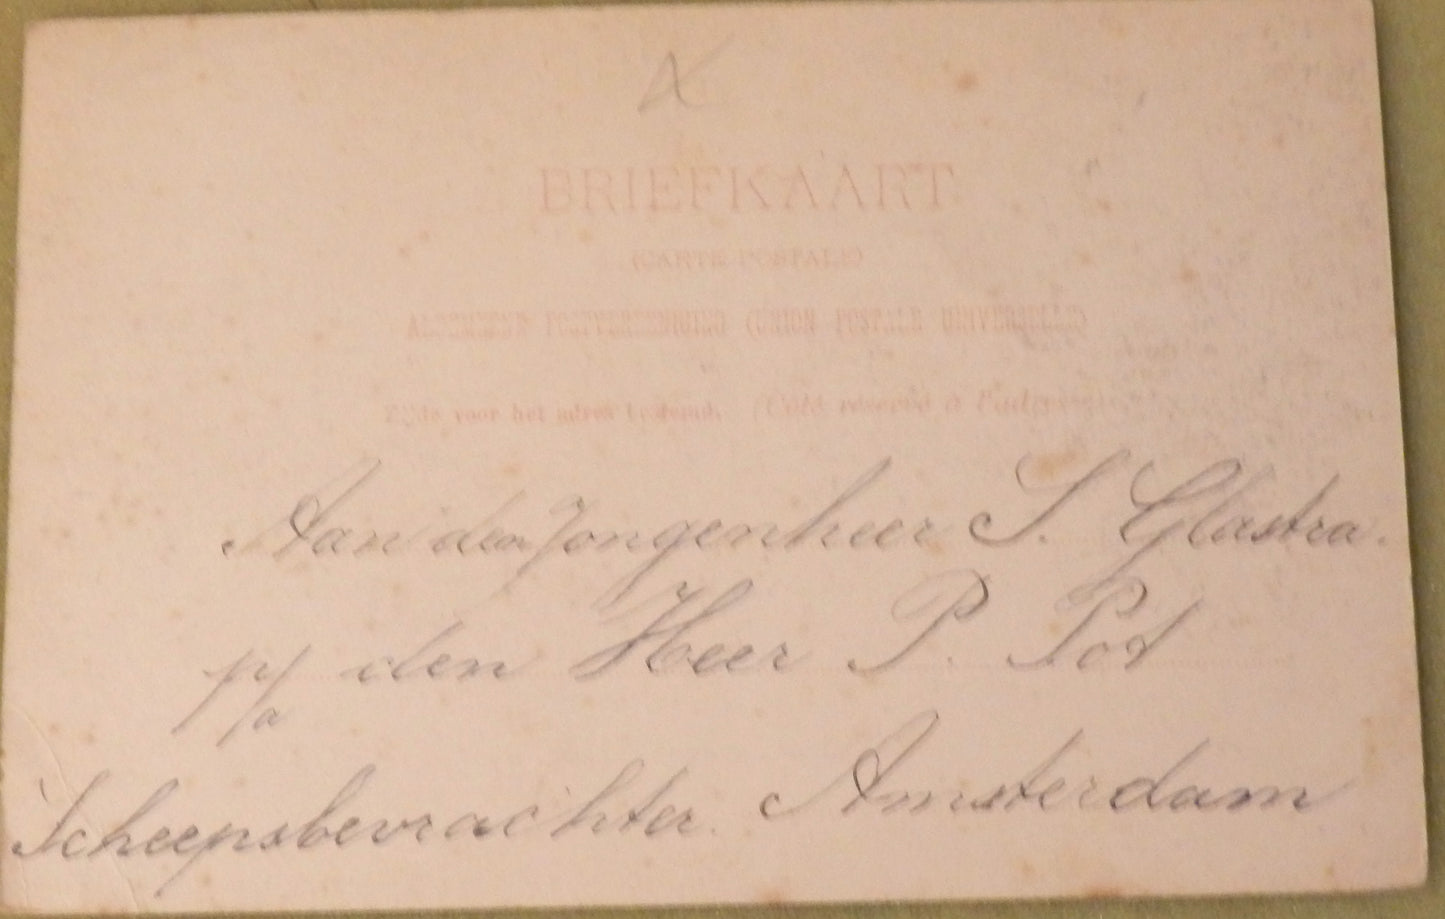 BRIEFKAART
(CARTE POSTALE)
ALGEMEENE POSTVEREENIGING (UNION POSTALE UNIVERSELLE)
Zijde voor het adres bestemd. (Côté réservé à l'adresse)
Aan den Jongenheer S. Glastra.
p/a den Heer P. Pot
Scheepsbevrachter. Amsterdam